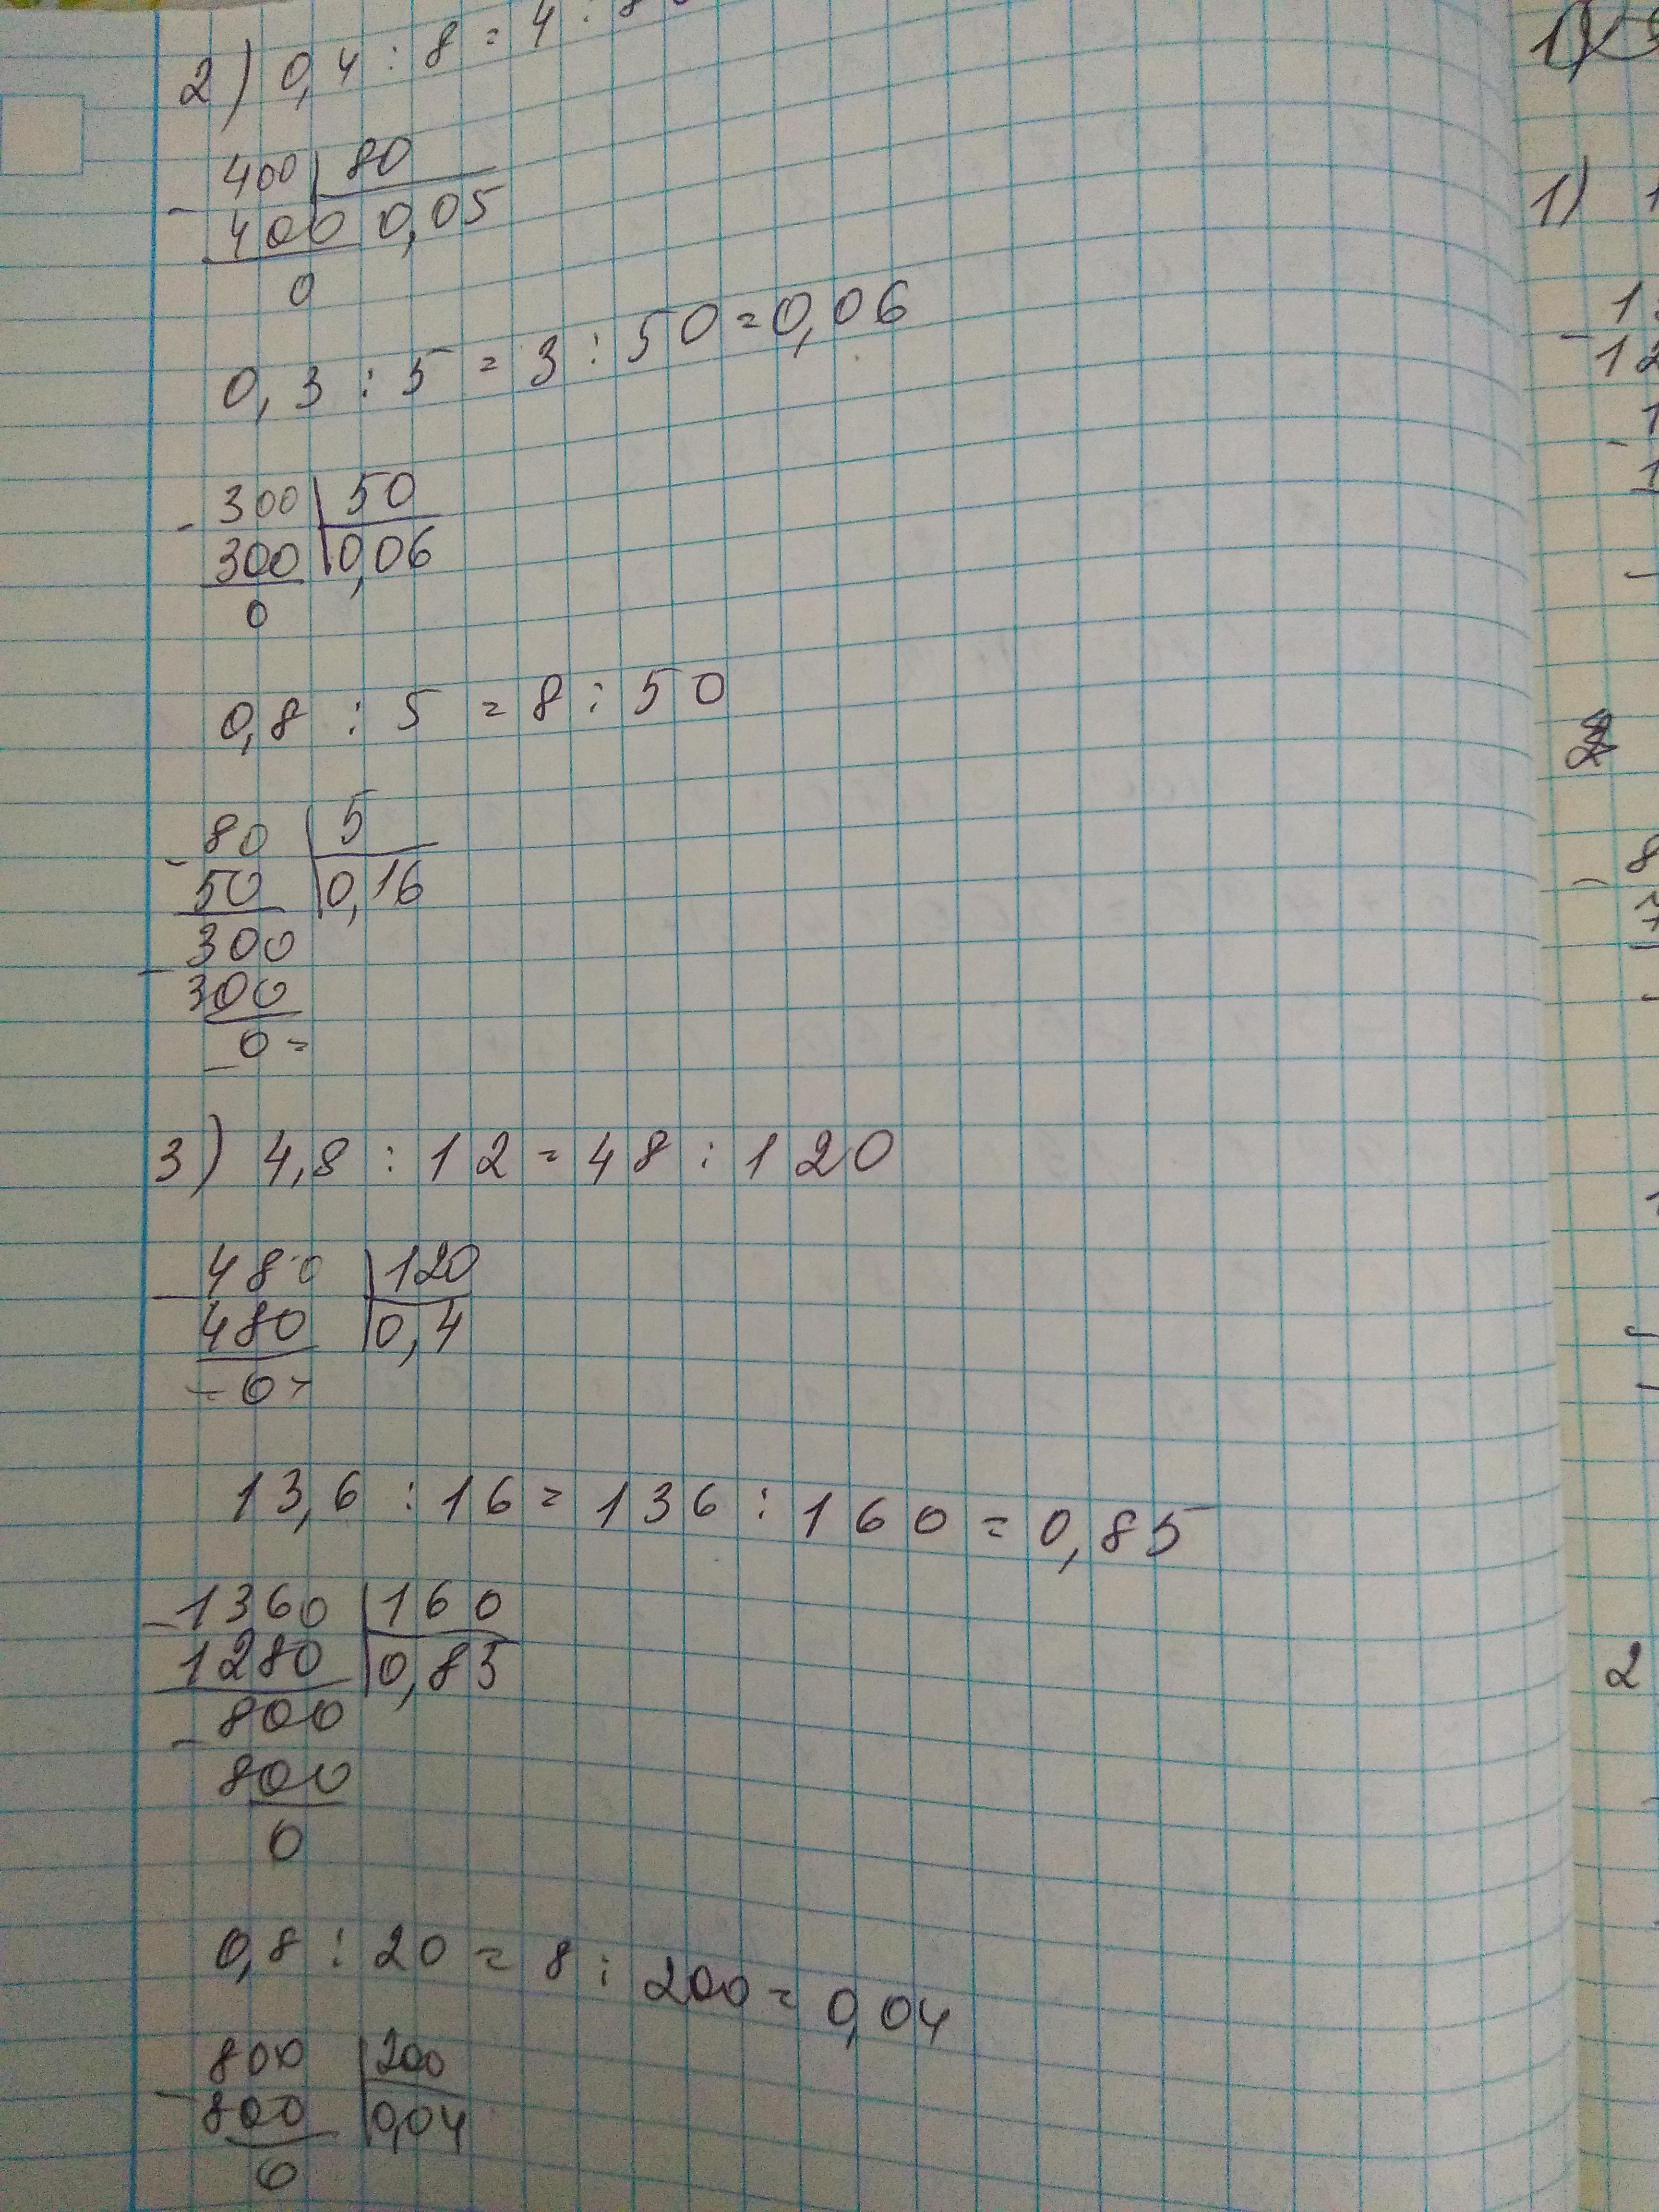 2) 0,4 : 8 = 4 : 8
- 400 | 80
400 0,05
0
0,3 : 5 = 3 : 50 = 0,06
- 300 | 50
300 | 0,06
0
0,8 : 5 = 8 : 50
- 80 | 5
50 | 0,16
300
- 300
0
3) 4,8 : 12 = 48 : 120
- 480 | 120
480 | 0,4
0
13,6 : 16 = 136 : 160 = 0,85
- 1360 | 160
1280 | 0,85
- 800
800
0
0,8 : 20 = 8 : 200 = 0,04
- 800 | 200
800 | 0,04
0
1)
1)
2